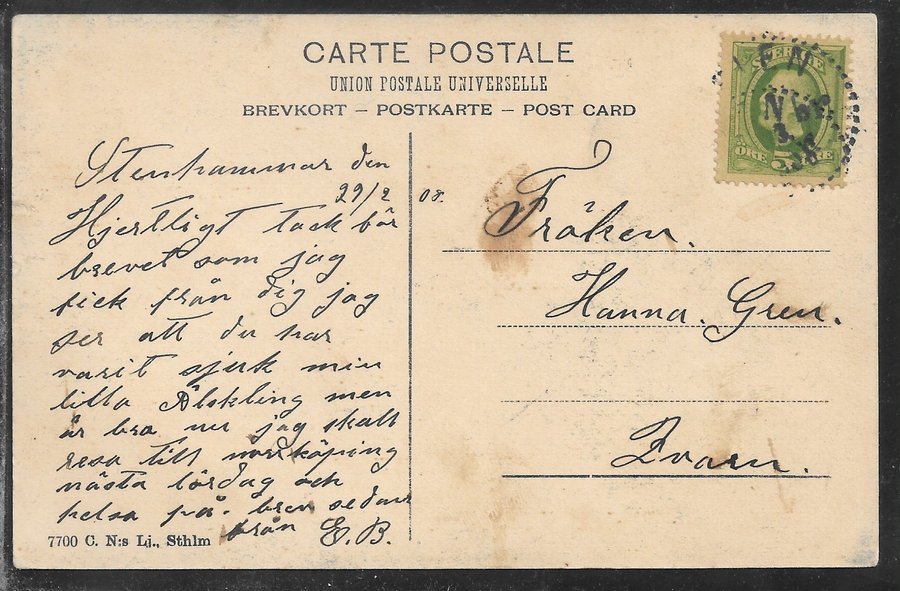 CARTE POSTALE
UNION POSTALE UNIVERSELLE
BREVKORT – POSTKARTE – POST CARD
SVERIGE
ÖRE 5 ÖRE
Stenhammar den
29/2 08.
Hjertligt tack för
brevet som jag
fick från dig jag
ser att du har
varit sjuk min
lilla Älskling men
är bra nu jag skall
resa till norrköping
nästa lördag och
helsa på. brev sedan
från E.B.
Fröken.
Hanna. Gren.
7700 C. N:s Lj., Sthlm